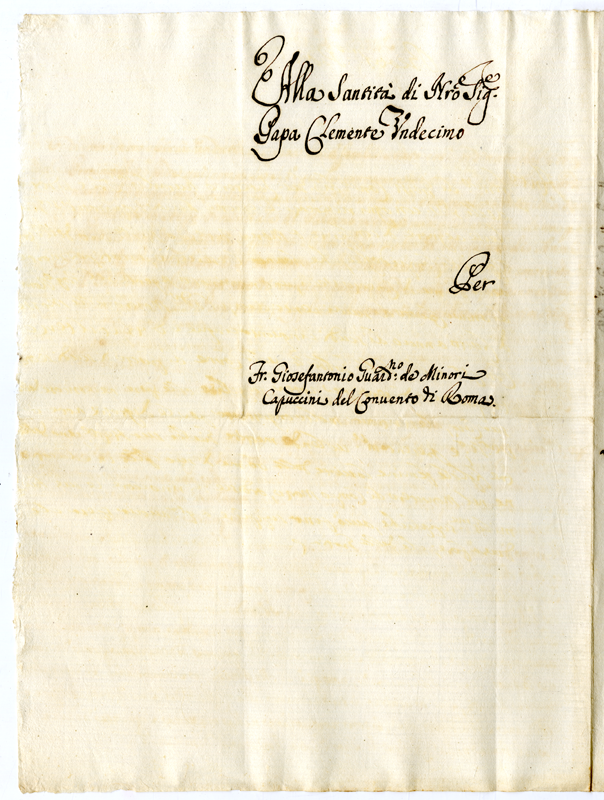 Alla Santità di Nro Sigre
Papa Clemente Undecimo
Per
Fr. Giosefantonio Guardno: de Minori
Capuccini del Convento di Roma.